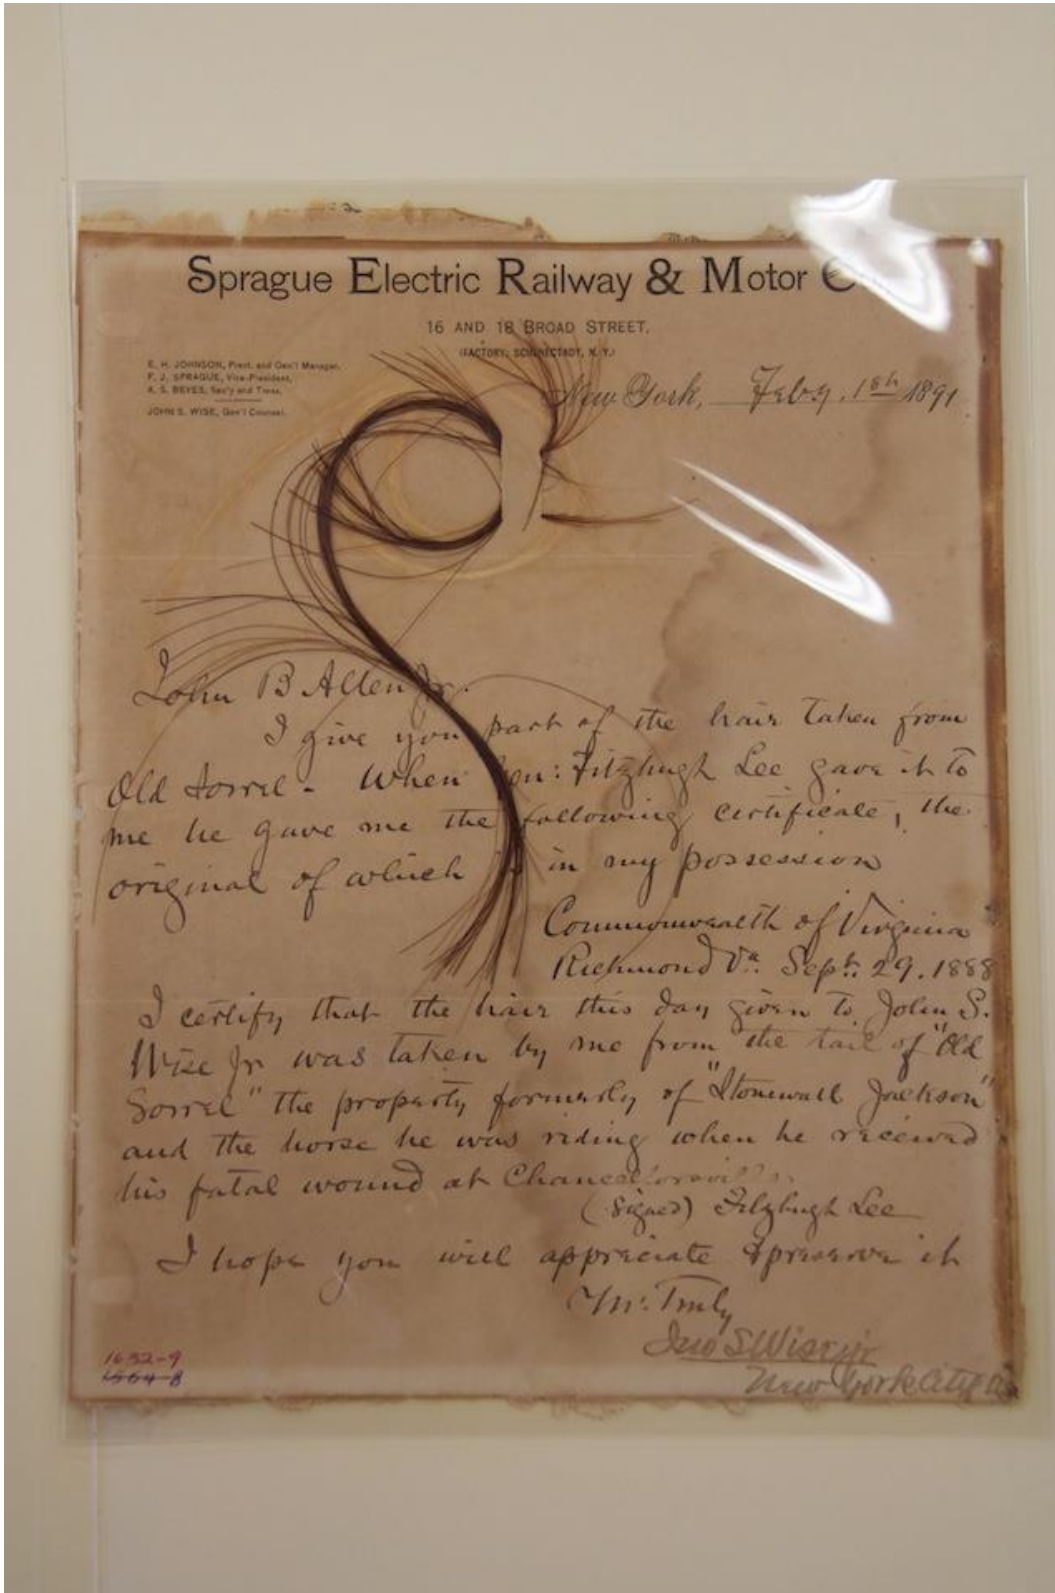 Sprague Electric Railway & Motor
16 AND 18 BROAD STREET.
(FACTORY: SCHENECTADY, N. Y.)
E. H. JOHNSON, Prest. and Gen'l Manager.
F. J. SPRAGUE, Vice-President.
A. S. BEVES, Sec'y and Treas.
JOHN S. WISE, Gen'l Counsel.
New York, Feby. 18th 1891
John B Allen Jr.
I give you part of the hair taken from
Old Sorrel - When Gen: Fitzhugh Lee gave it to
me he gave me the following certificate, the
original of which is in my possession
Commonwealth of Virginia
Richmond Va. Sept. 29. 1888
I certify that the hair this day given to John S.
Wise Jr was taken by me from the tail of "Old
Sorrel" the property formerly of "Stonewall Jackson"
and the horse he was riding when he received
his fatal wound at Chancellorsville.
(Signed) Fitzhugh Lee
I hope you will appreciate & preserve it
Yrs. Truly
Jno S Wise jr
New York City
1632-9
1564-8